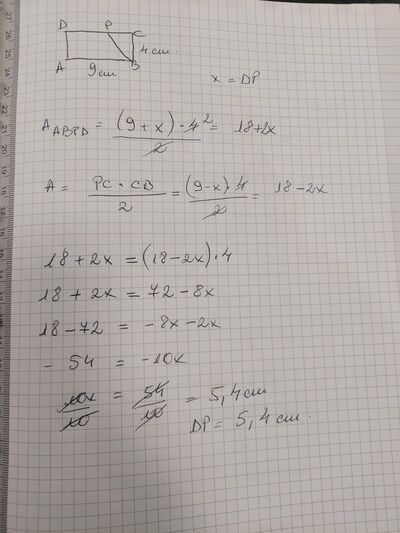 D P C
4 cm.
A 9 cm B
x = DP
A ABPD = (9 + x) · 4 2 / 2 = 18 + 2x
A = PC · CB / 2 = (9 - x) · 4 / 2 = 18 - 2x
18 + 2x = (18 - 2x) · 4
18 + 2x = 72 - 8x
18 - 72 = - 8x - 2x
- 54 = - 10x
10x / 10 = 54 / 10 = 5,4 cm
DP = 5,4 cm.